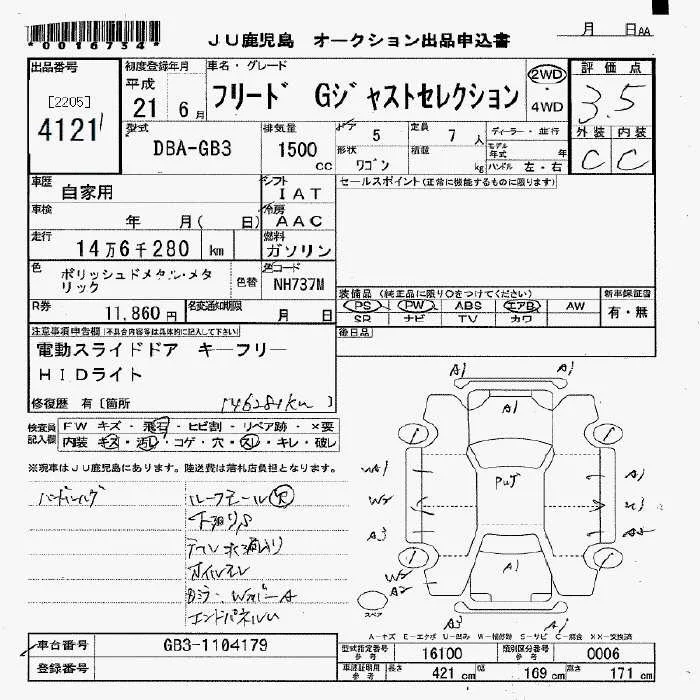 *0016734*
JU鹿児島 オークション出品申込書
月 日AA
出品番号
[2205]
4121
初度登録年月
平成
21 6月
車名・グレード
フリード Gジャストセレクション
2WD
・
4WD
評価点
3.5
外装 内装
C C
型式
DBA-GB3
排気量
1500
cc
ドア 5
定員 7人
ディーラー・並行
形状 ワゴン
積載 kg
モデル年式 年
ハンドル 左・右
車歴
自家用
シフト
IAT
セールスポイント(正常に機能するものに限ります)
車検
年 月( 日)
冷房
AAC
走行
14万6千280 km
燃料
ガソリン
色
ポリッシュドメタル・メタリック
色替
色コード
NH737M
装備品(純正品に限り○をつけてください)
PS PW ABS エアB AW
SR ナビ TV カワ
新車保証書
有・無
R券
11,860円
名変通知期限
月 日
後日品
注意事項申告欄(不具合内容等は具体的に記入して下さい)
電動スライドドア キーフリー
HIDライト
修復歴 有[箇所 146281km ]
検査員記入欄
FW キズ・飛石・ヒビ割・リペア跡・×要
内装 キズ・汚れ・コゲ・穴・スレ・キレ・破し
※現車はJU鹿児島にあります。陸送費は落札店負担となります。
A1 A1
A1
W2
A3
A1
A1
W2
A2
A3 A1
スペア
A-キズ E-エクボ U-凹み W-補修跡 S-サビ C-腐食 XX-交換済
車台番号
GB3-1104179
登録番号
型式指定番号
参考
16100
類別区分番号
参考
0006
車検証明用
参考
長さ 421 cm
幅 169 cm
高さ 171 cm